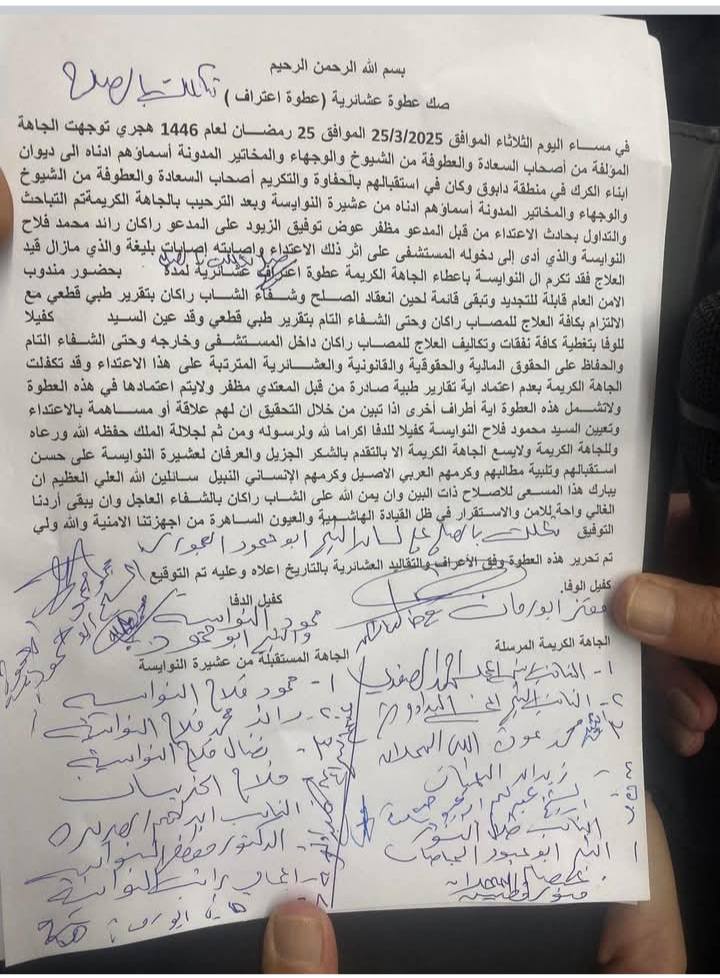 بسم الله الرحمن الرحيم
تكللت بالصلح
صك عطوة عشائرية (عطوة اعتراف )
في مســـاء اليوم الثلاثاء الموافق 25/3/2025 الموافق 25 رمضـــان لعام 1446 هجري توجهت الجاهة
المؤلفة من أصحاب السعادة والعطوفة من الشيوخ والوجهاء والمخاتير المدونة أسماؤهم ادناه الى ديوان
ابناء الكرك في منطقة دابوق وكان في استقبالهم بالحفاوة والتكريم أصحاب السعادة والعطوفة من الشيوخ
والوجهاء والمخاتير المدونة أسماؤهم ادناه من عشيرة النوايسة وبعد الترحيب بالجاهة الكريمةتم التباحث
والتداول بحادث الاعتداء من قبل المدعو مظفر عوض توفيق الزيود على المدعو راكان رائد محمد فلاح
النوايسة والذي أدى إلى دخوله المستشفى على اثر ذلك الاعتداء واصابته إصابات بليغة والذي مازال قيد
العلاج فقد تكرم ال النوايسة باعطاء الجاهة الكريمة عطوة اعتراف عشائرية لمدة بحضور مندوب
الامن العام قابلة للتجديد وتبقى قائمة لحين انعقاد الصلـح وشـفاء الشـاب راكان بتقرير طبي قطعي مع
الالتزام بكافة العلاج للمصاب راكان وحتى الشـفاء التام بتقرير طبي قطعي وقد عين السـيد كفيلا
للوفا بتغطية كافة نفقات وتكاليف العلاج للمصـاب راكان داخل المسـتشفى وخارجه وحتى الشـفاء التام
والحفاظ على الحقوق المالية والحقوقية والقانونية والعشـائرية المترتبة على هذا الاعتداء وقد تكفلت
الجاهة الكريمة بعدم اعتماد اية تقارير طبية صادرة من قبل المعتدي مظفر ولايتم اعتمادها في هذه العطوة
ولاتشـمل هذه العطوة اية أطراف أخرى اذا تبين من خلال التحقيق ان لهم علاقة أو مسـاهمة بالاعتداء
وتعيين السيد محمود فلاح النوايسة كفيلا للدفا اكراما لله ولرسوله ومن ثم لجلالة الملك حفظه الله ورعاه
وللجاهة الكريمة ولايسع الجاهة الكريمة الا بالتقدم بالشكر الجزيل والعرفان لعشيرة النوايسة على حسن
استقبالهم وتلبية مطالبهم وكرمهم العربي الاصيل وكرمهم الإنساني النبيل سـائلين الله العلي العظيم ان
يبارك هذا المسـعى للاصلاح ذات البين وان يمن الله على الشاب راكان بالشفاء العاجل وان يبقى أردننا
الغالي واحة للامن والاستقرار في ظل القيادة الهاشمية والعيون الساهرة من اجهزتنا الامنية والله ولي
التوفيق
تكللت بالصلح على لسان الشيخ ابو محمود
تم تحرير هذه العطوة وفق الأعراف والتقاليد العشائرية بالتاريخ اعلاه وعليه تم التوقيع
كفيل الوفا.
كفيل الدفا
محمود النوايسة
الجاهة الكريمة المرسلة
١- النائب احمد الصفدي
٢- النائب
٣- محمد عوض الله
٤- زيد
النائب طلال النسور
الشيخ ابو عبود
الجاهة المستقبلة من عشيرة النوايسة
١- محمود فلاح النوايسة
٢- رائد محمد فلاح النوايسة
٣- نضال فلاح النوايسة
فلاح
النائب ابراهيم
الدكتور النوايسة
النوايسة